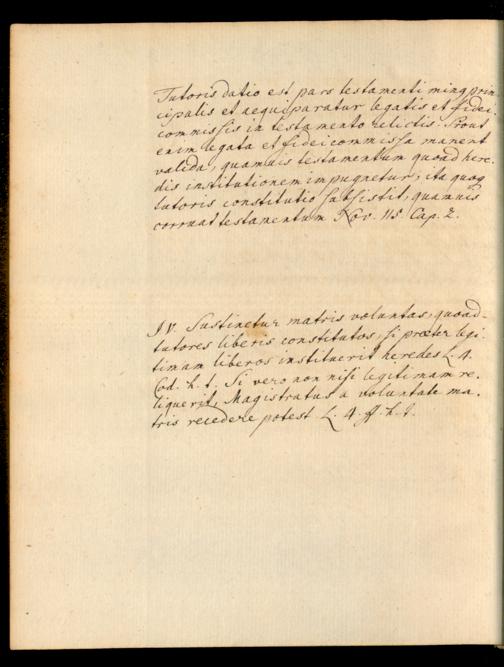 Tutoris datio est pars testamenti minq prin-
cipalis et aequiparatur legatis et fidei-
commissis in testamento relictis. Prout
enim legata et fidei commissa manent
valida, quamuis testamentum quoad here-
dis institutionem impugnetur; ita quoq
tutoris constitutio subsistit, quamuis
corruat testamentum Nov. 115. Cap. 2.
IV. Sustinetur matris voluntas, quoad-
tutores liberis constitutos, si praeter legi-
timam liberos instituerit heredes L. 4.
Cod. h. t. Si vero non nisi legitimam re-
liquerit, Magistratus a voluntate ma-
tris recedere potest L. 4. ff. h. t.